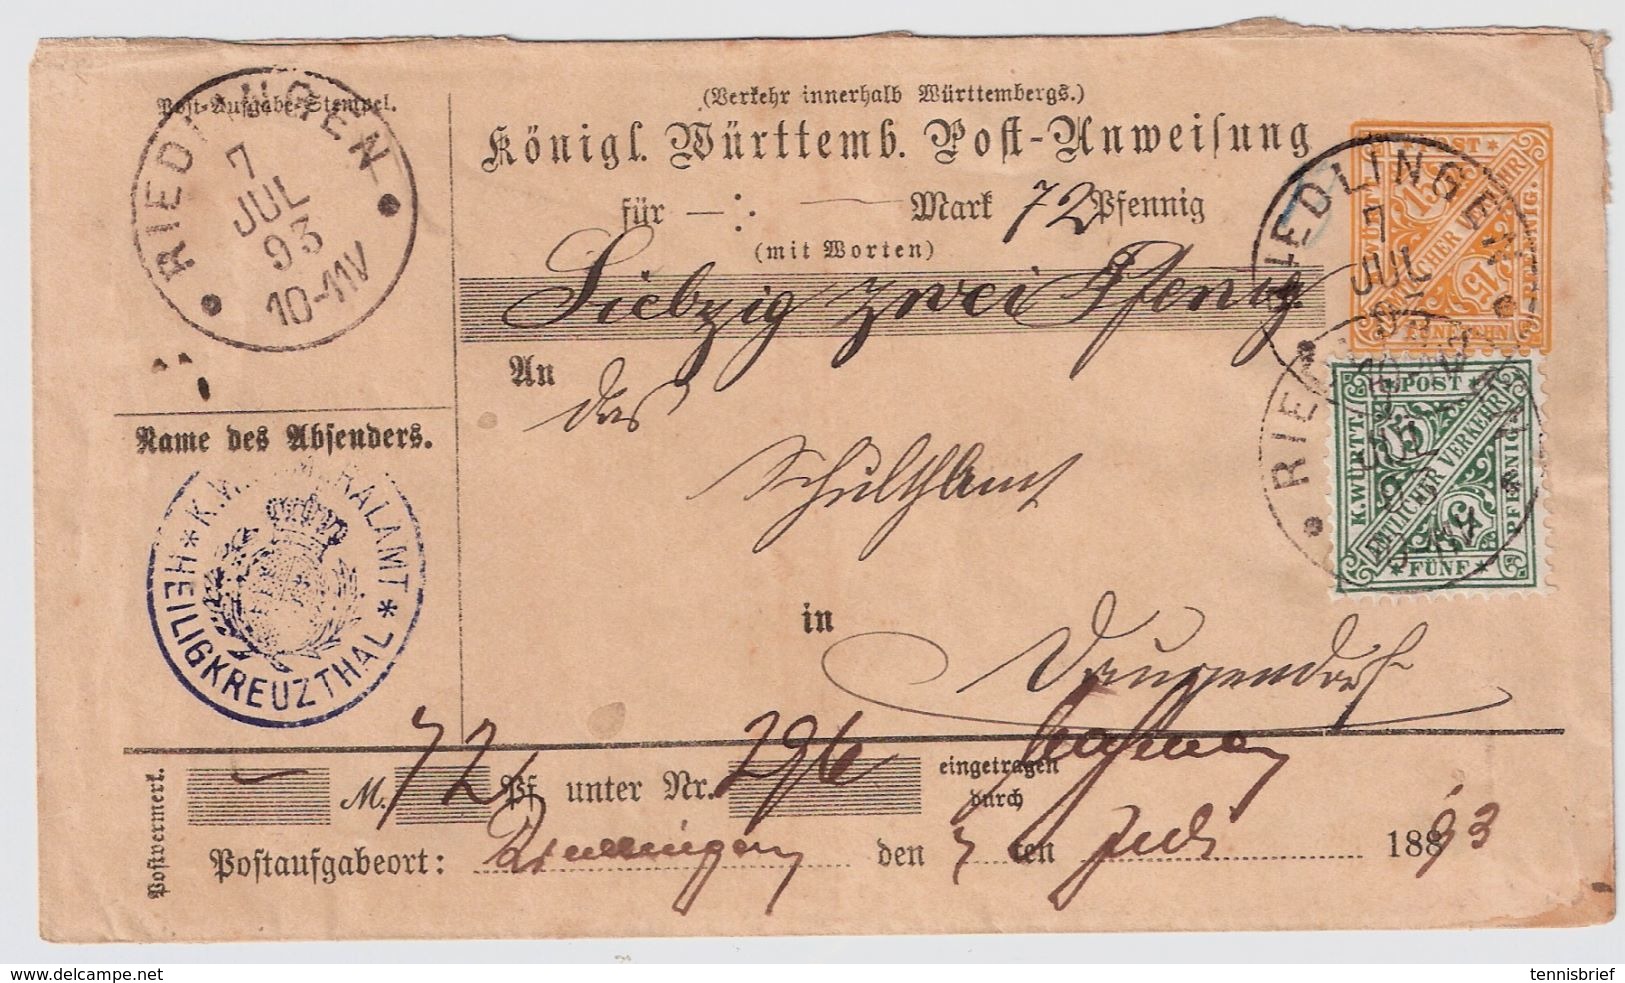 Post-Aufgabe-Stempel.
RIEDLINGEN
7
JUL
93
10-11V
(Verkehr innerhalb Württembergs.)
Königl. Württemb. Post-Anweisung
für — Mark 72 Pfennig
(mit Worten)
Siebzig zwei Pfenig
An
das
Schulthamt
in
Name des Absenders.
K.W. CAMERALAMT
HEILIGKREUZTHAL
RIEDLINGEN
7
JUL
93
POST
K. WÜRTT.
15
AMTLICHER VERKEHR
15
PFENNIG.
FÜNFZEHN
POST
K. WÜRTT.
5
AMTLICHER VERKEHR
5
PFENNIG
FÜNF
JUL
Postvermerk.
M. 72 Pf. unter Nr. 296 eingetragen
durch
Postaufgabeort: den 7 ten Juli 188 93
www.delcampe.net
tennisbrief